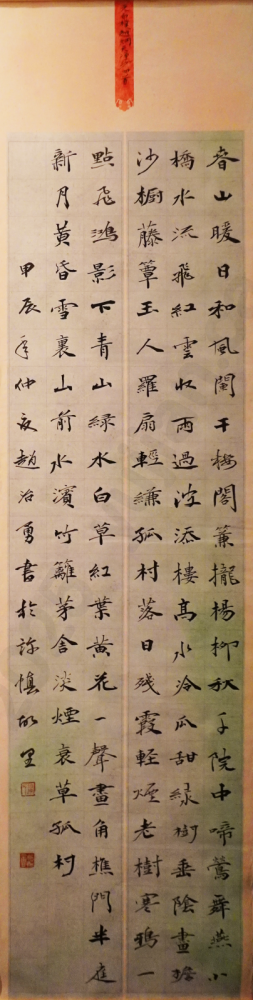 春山暖日和風闌干樓閣簾櫳楊柳秋千院中啼鶯舞燕小
橋水流飛紅雲收雨過波添樓高水冷瓜甜綠樹垂陰畫簷
沙櫥藤簟玉人羅扇輕縑孤村落日殘霞輕煙老樹寒鴉一
點飛鴻影下青山綠水白草紅葉黃花一聲畫角樵門半庭
新月黃昏雪裏山前水濱竹籬茅舍淡煙衰草孤村
甲辰年仲夏趙治勇書於慎里